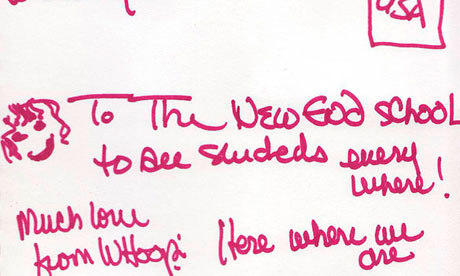 USA
To The New God School
to all Studeds every
where!
Much love
from Whoopi
Here where we
are